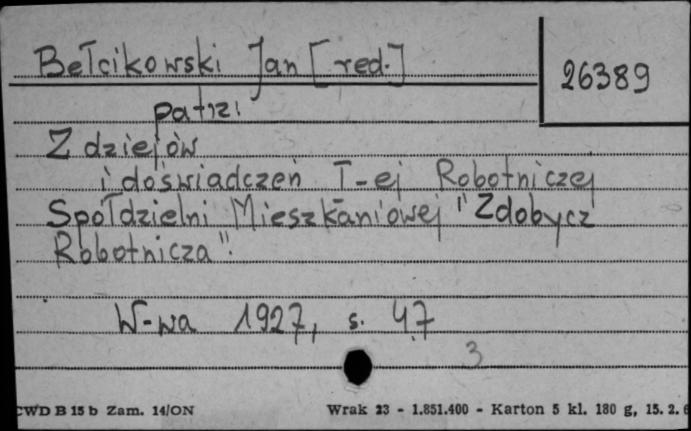 Bełcikowski Jan [red.]
26389
patrz:
Z dziejów
i doświadczeń I-ej Robotniczej
Spółdzielni Mieszkaniowej "Zdobycz
Robotnicza".
W-wa 1927, s. 47
3
CWD B 15 b Zam. 14/ON
Wrak 23 - 1.851.400 - Karton 5 kl. 180 g, 15. 2. 6